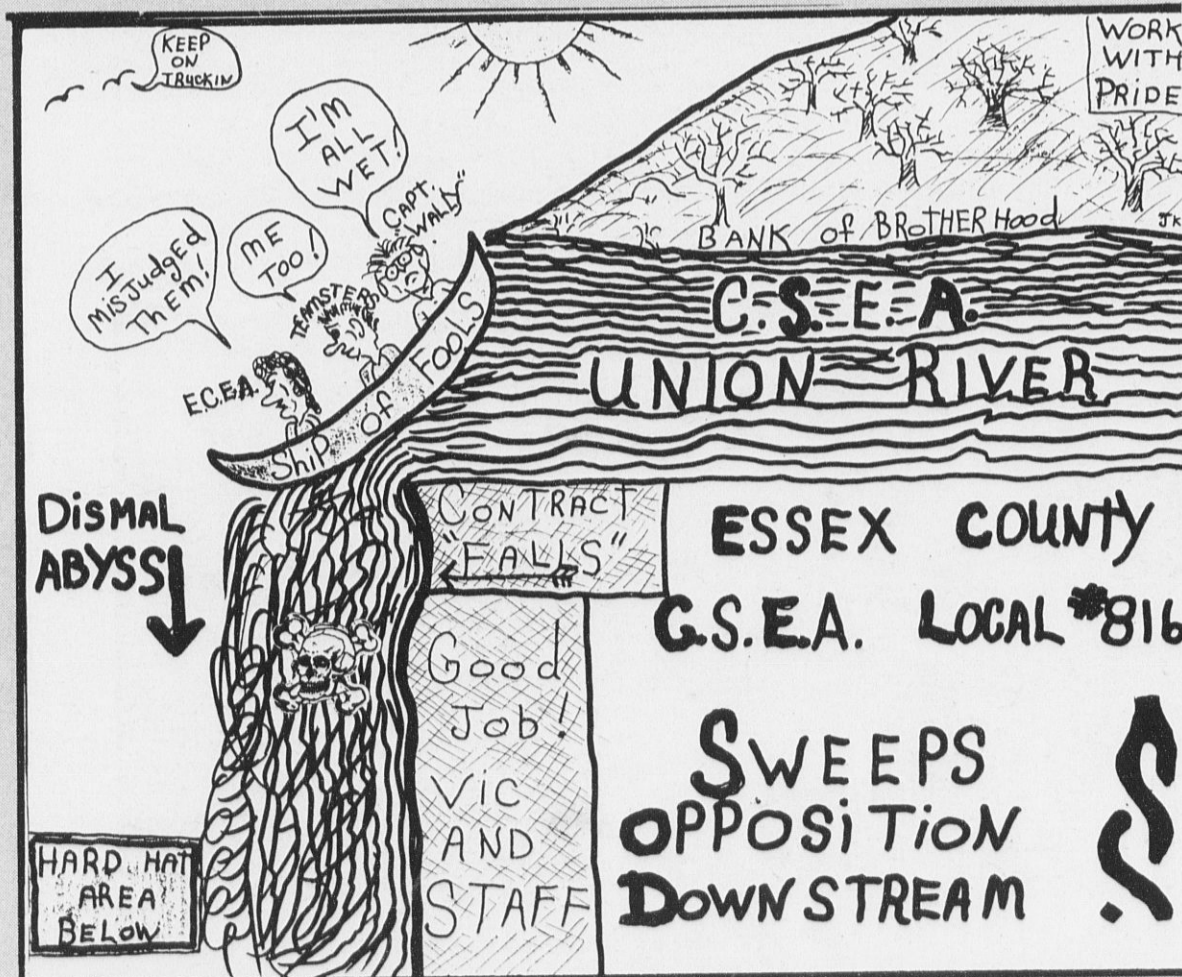 KEEP
ON
TRUCKIN
I'M
ALL
WET!
CAPT.
WALLY"
ME
TOO!
TEAMSTERS
I
MISJUDGED
THEM!
E.C.E.A.
SHIP OF FOOLS
WORK
WITH
PRIDE
BANK of BROTHERHOOD
JK
C.S.E.A.
UNION RIVER
DISMAL
ABYSS
CONTRACT
"FALLS"
Good
Job!
Vic
AND
STAFF
HARD HAT
AREA
BELOW
ESSEX COUNTY
C.S.E.A. LOCAL #816
SWEEPS
OPPOSITION
DOWNSTREAM